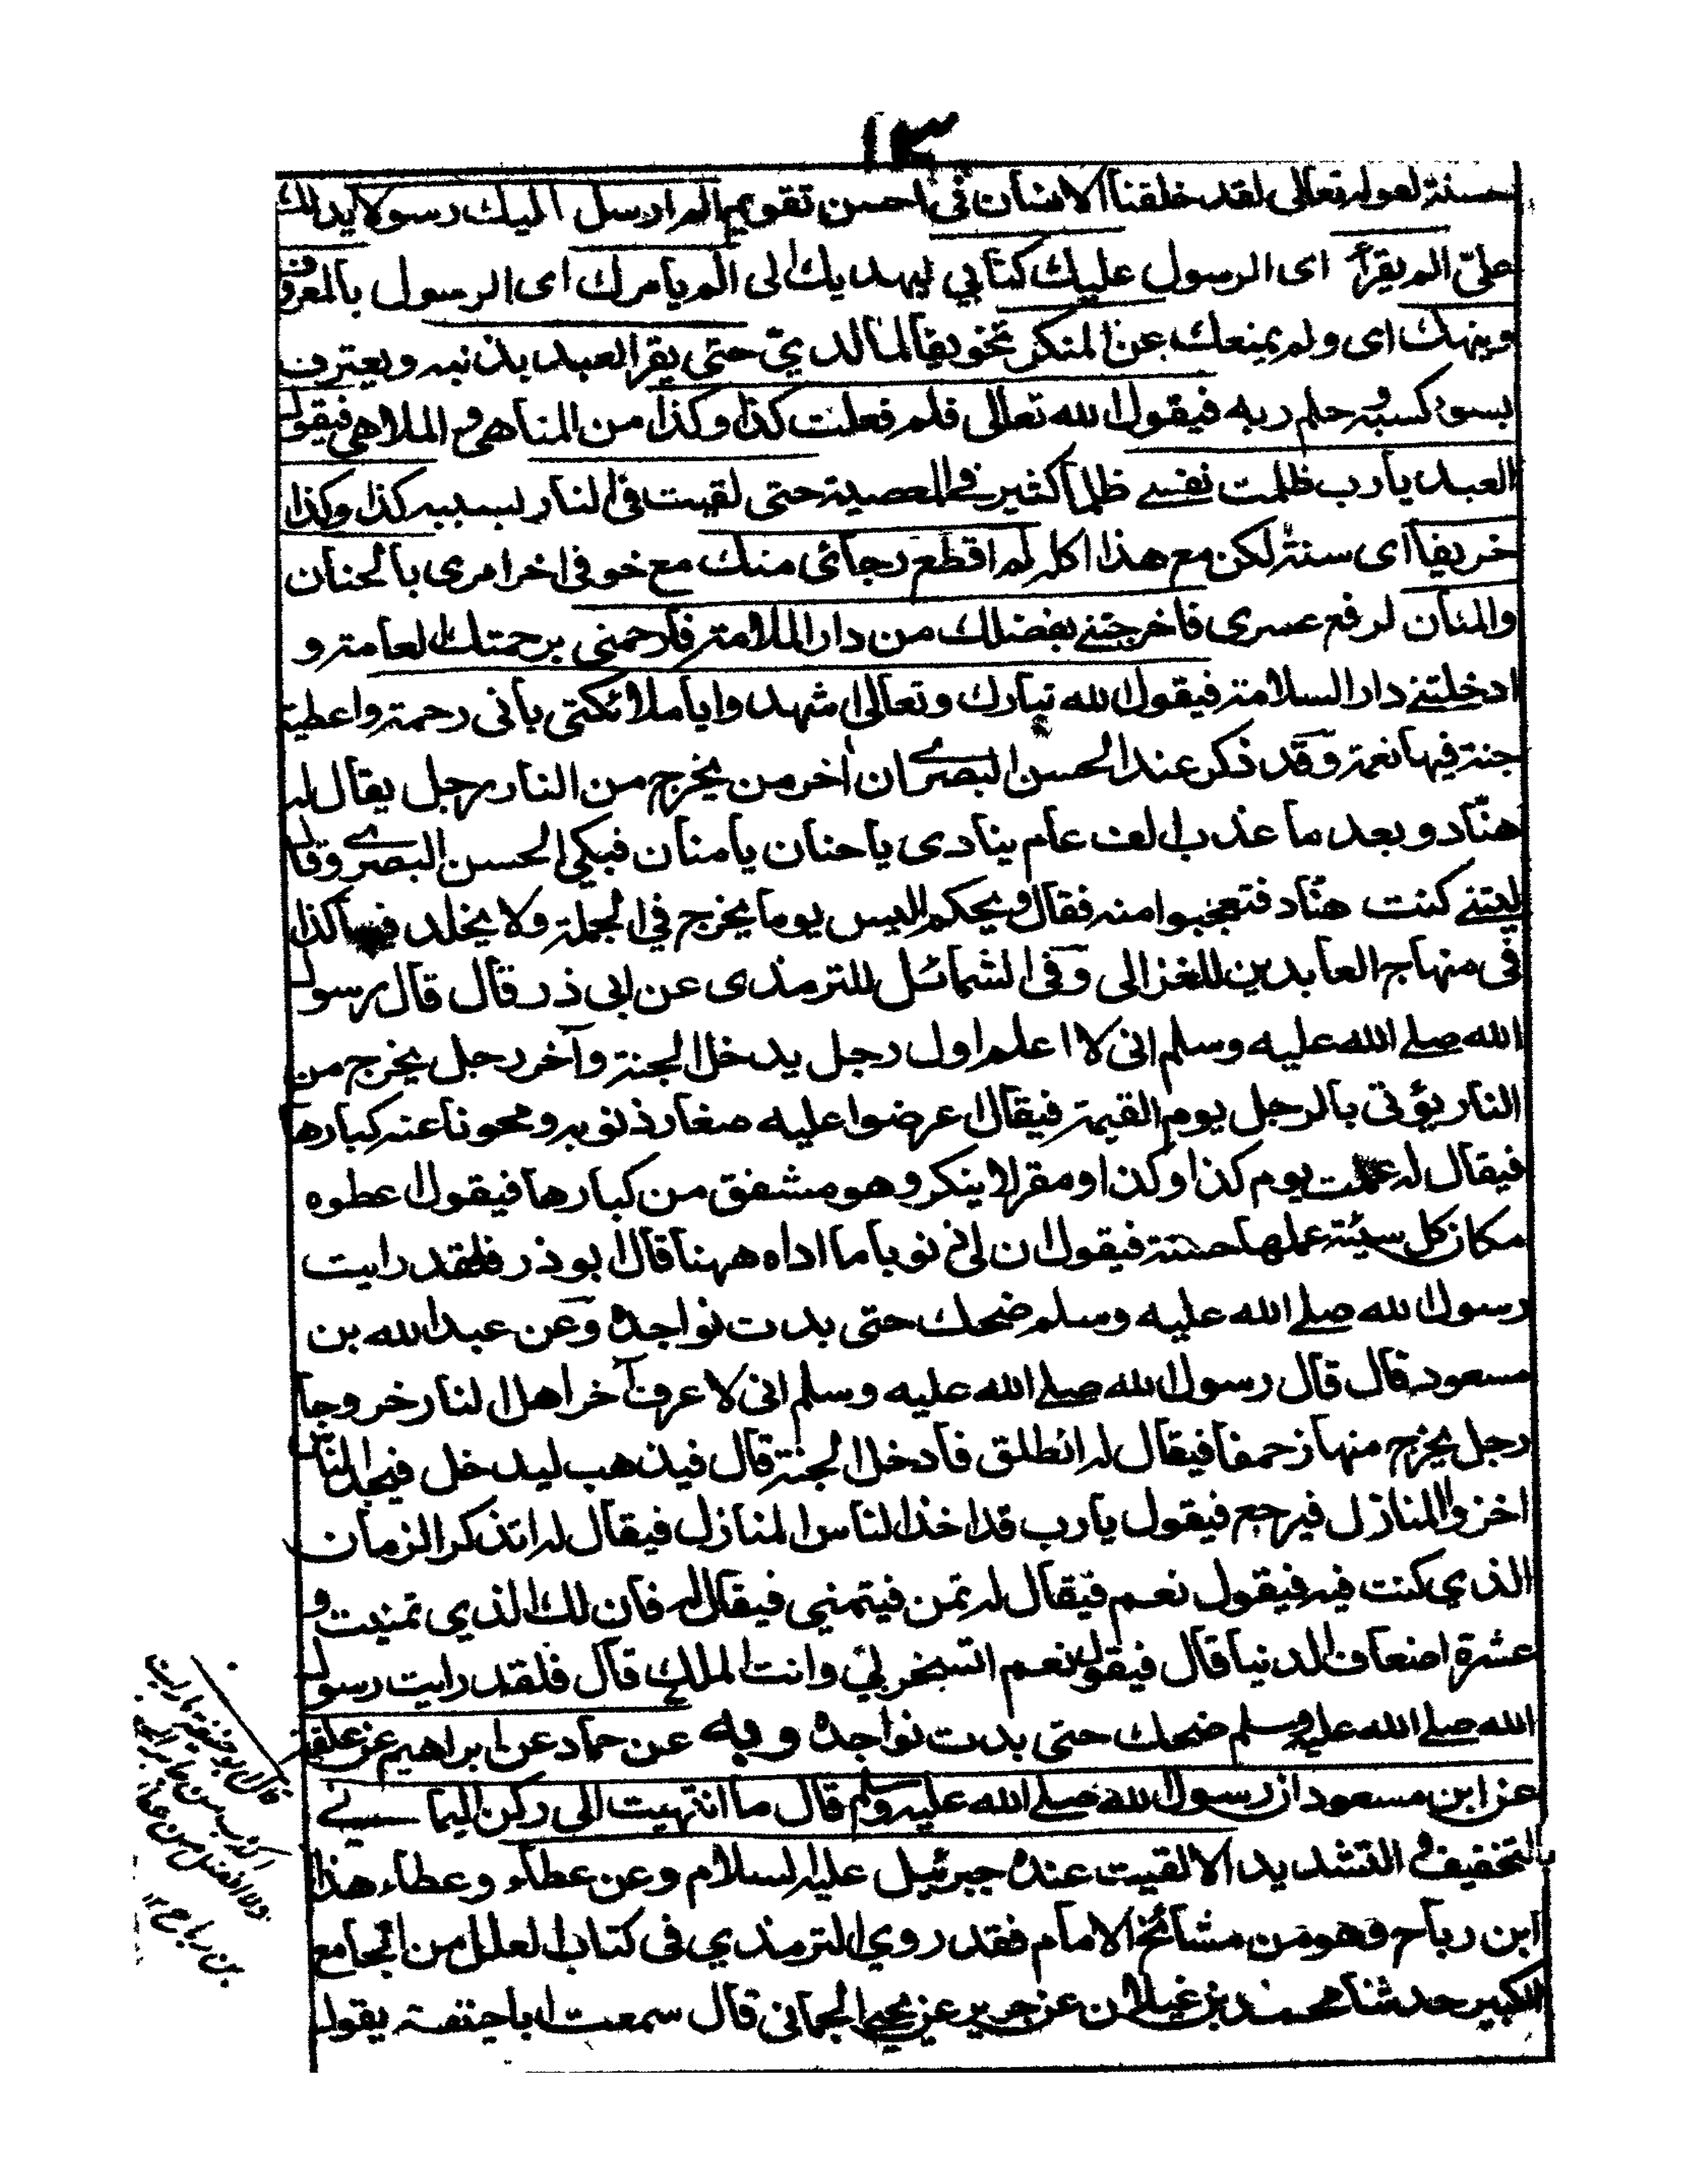 ١٣
حسنة لقوله تعالى لقد خلقنا الانسان فى احسن تقويم الم ارسل اليك رسولا يدلك
علىّ الم يقرأ اى الرسول عليك كتابي ليهديك الى الم يامرك اى الرسول بالمعروف
وينهك اى ولم يمنعك عن المنكر تخويفا لما لديّ حتى يقر العبد بذنبه ويعترف
بسوء كسبه وحلم ربه فيقول الله تعالى فلم فعلت كذا وكذا من المناهى والملاهى فيقول
العبد يا رب ظلمت نفسے ظلما كثير فى المعصية حتى لقيت فى النار بسببه كذا وكذا
خريفا اى سنة لكن مع هذا اكله لم اقطع رجائى منك مع خوفى اخر امرى بالحنان
والمنان لرفع عسرى فاخرجتنے بفضلك من دار الملامة فارحمنى برحمتك العامة و
ادخلتنے دار السلامة فيقول الله تبارك وتعالى اشهدوا يا ملائكتى بانى رحمة واعطية
جنة فيها نعمة وقد ذكر عند الحسن البصرے ان اخر من يخرج من النار رجل يقال له
هنّاد وبعد ما عذب الف عام ينادى يا حنان يا منان فبكى الحسن البصرے وقال
ليتنے كنت هنّاد فتعجبوا منه فقال ويحكم اليس يوما يخرج فى الجملة ولا يخلد فيها كذا
فى منهاج العابدين للغزالى وفى الشمائل للترمذى عن ابى ذر قال قال رسول
الله صلے الله عليه وسلم انى لا اعلم اول رجل يدخل الجنة وآخر رجل يخرج من
النار يؤتى بالرجل يوم القيمة فيقال اعرضوا عليه صغار ذنوبه ومحونا عنه كبارها
فيقال له عملت يوم كذا وكذا ومقر لا ينكر وهو مشفق من كبارها فيقول اعطوه
مكان كل سيئة عملها حسنة فيقول ان لى ذنوبا ما اداه ههنا قال ابو ذر فلقد رايت
رسول الله صلے الله عليه وسلم ضحك حتى بدت نواجذه وعن عبد الله بن
مسعود قال قال رسول الله صلے الله عليه وسلم انى لا عرف آخر اهل النار خروجا
رجل يخرج منها زحفا فيقال له انطلق فادخل الجنة قال فيذهب ليدخل فيجد الناس
اخذوا المنازل فيرجع فيقول يارب قد اخذ الناس المنازل فيقال له اتذكر الزمان
الذي كنت فيه فيقول نعم فيقال له تمن فيتمني فيقال له فان لك الذي تمنيت و
عشرة اضعاف الدنيا قال فيقول نعم اتسخر بي وانت الملك قال فلقد رايت رسول
الله صلے الله عليه وسلم ضحك حتى بدت نواجذه وبه عن حماد عن ابراهيم عن علقمة
عن ابن مسعود ان رسول الله صلے الله عليه وسلم قال ما انتهيت الى ركن اليمانے
بالتخفيف والتشديد الا لقيت عنده جبرئيل عليه السلام وعن عطاء وعطاء هذا
ابن رباح وهو من مشائخ الامام فقد روي الترمذي فى كتاب العلل من الجامع
الكبير حدثنا محمود بن غيلان عن جرير عن يحيى الجمانى قال سمعت ابا حنيفة يقول
قال ابو حنيفة ما رايت
اكذب من جابر
ولا افضل من عطاء
بن رباح ١٢